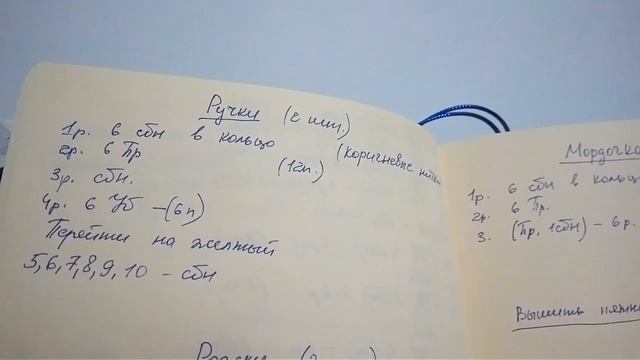 Ручки (2 шт.)
1р. 6 сбн в кольцо
(коричневые нитки
2р. 6 Пр (12п.)
3р. сбн.
4р. 6 Уб – (6п)
Перейти на желтый
5,6,7,8,9,10 – сбн
Мордочка
1р. 6 сбн в кольцо
2р. 6 Пр.
3. (Пр. 1сбн) – 6р.
Вышить